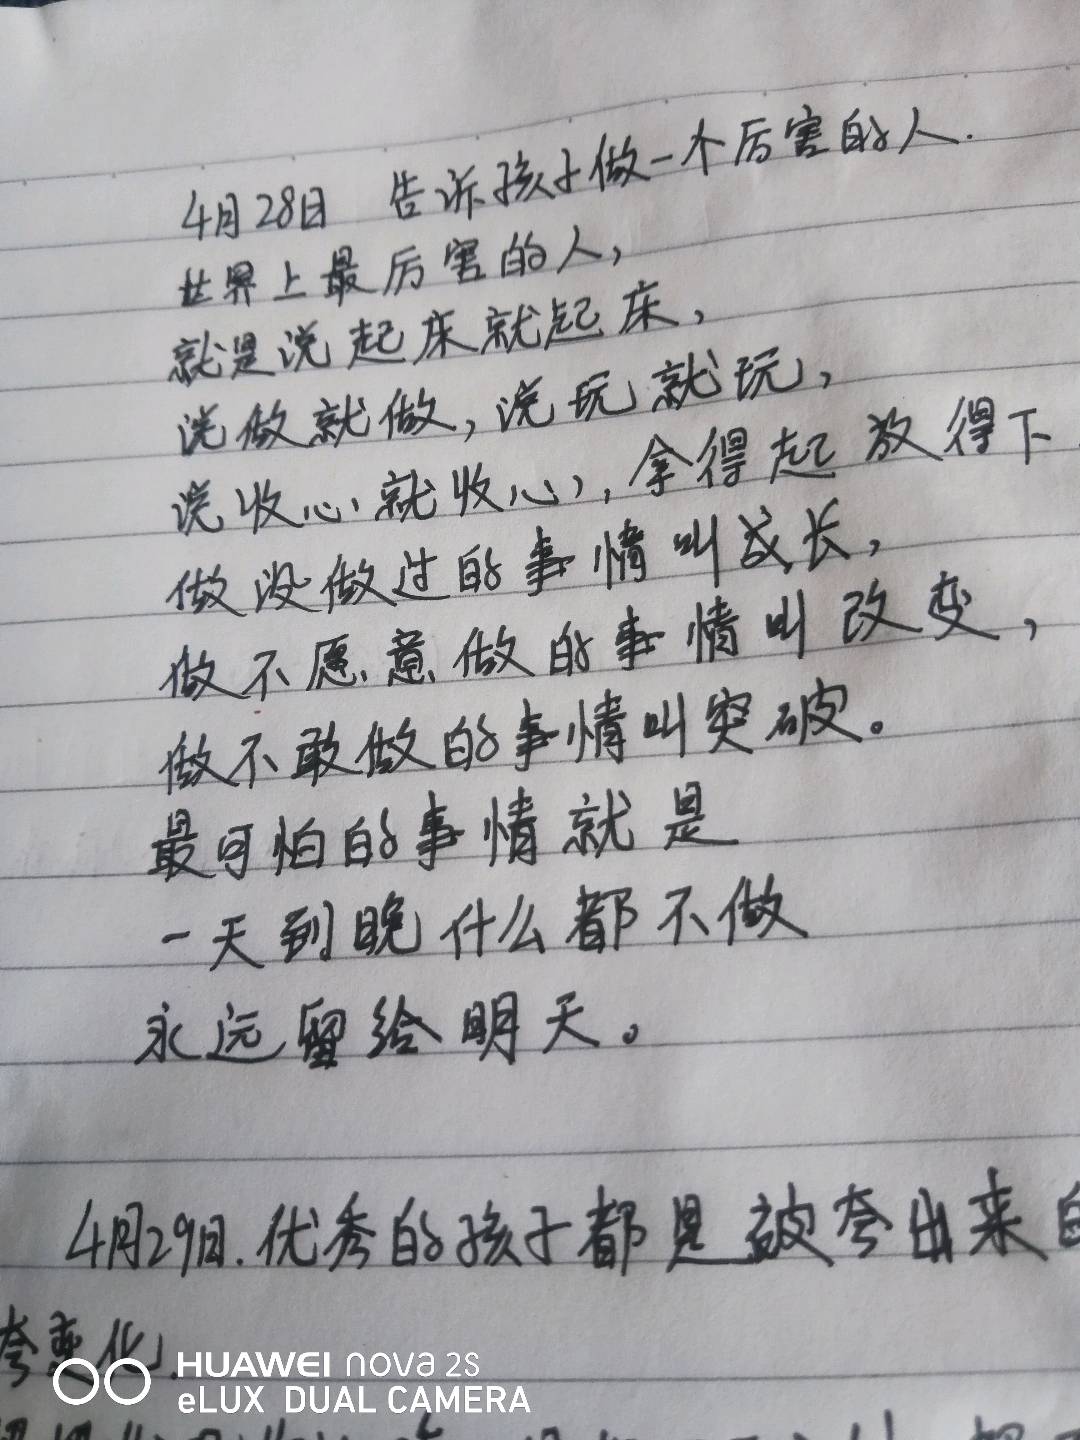 4月28日 告诉孩子做一个厉害的人.
世界上最厉害的人,
就是说起床就起床,
说做就做,说玩就玩,
说收心就收心,拿得起放得下
做没做过的事情叫成长,
做不愿意做的事情叫改变,
做不敢做的事情叫突破。
最可怕的事情就是
一天到晚什么都不做
永远留给明天。
4月29日.优秀的孩子都是被夸出来的
夸变化.
HUAWEI nova 2S
eLUX DUAL CAMERA